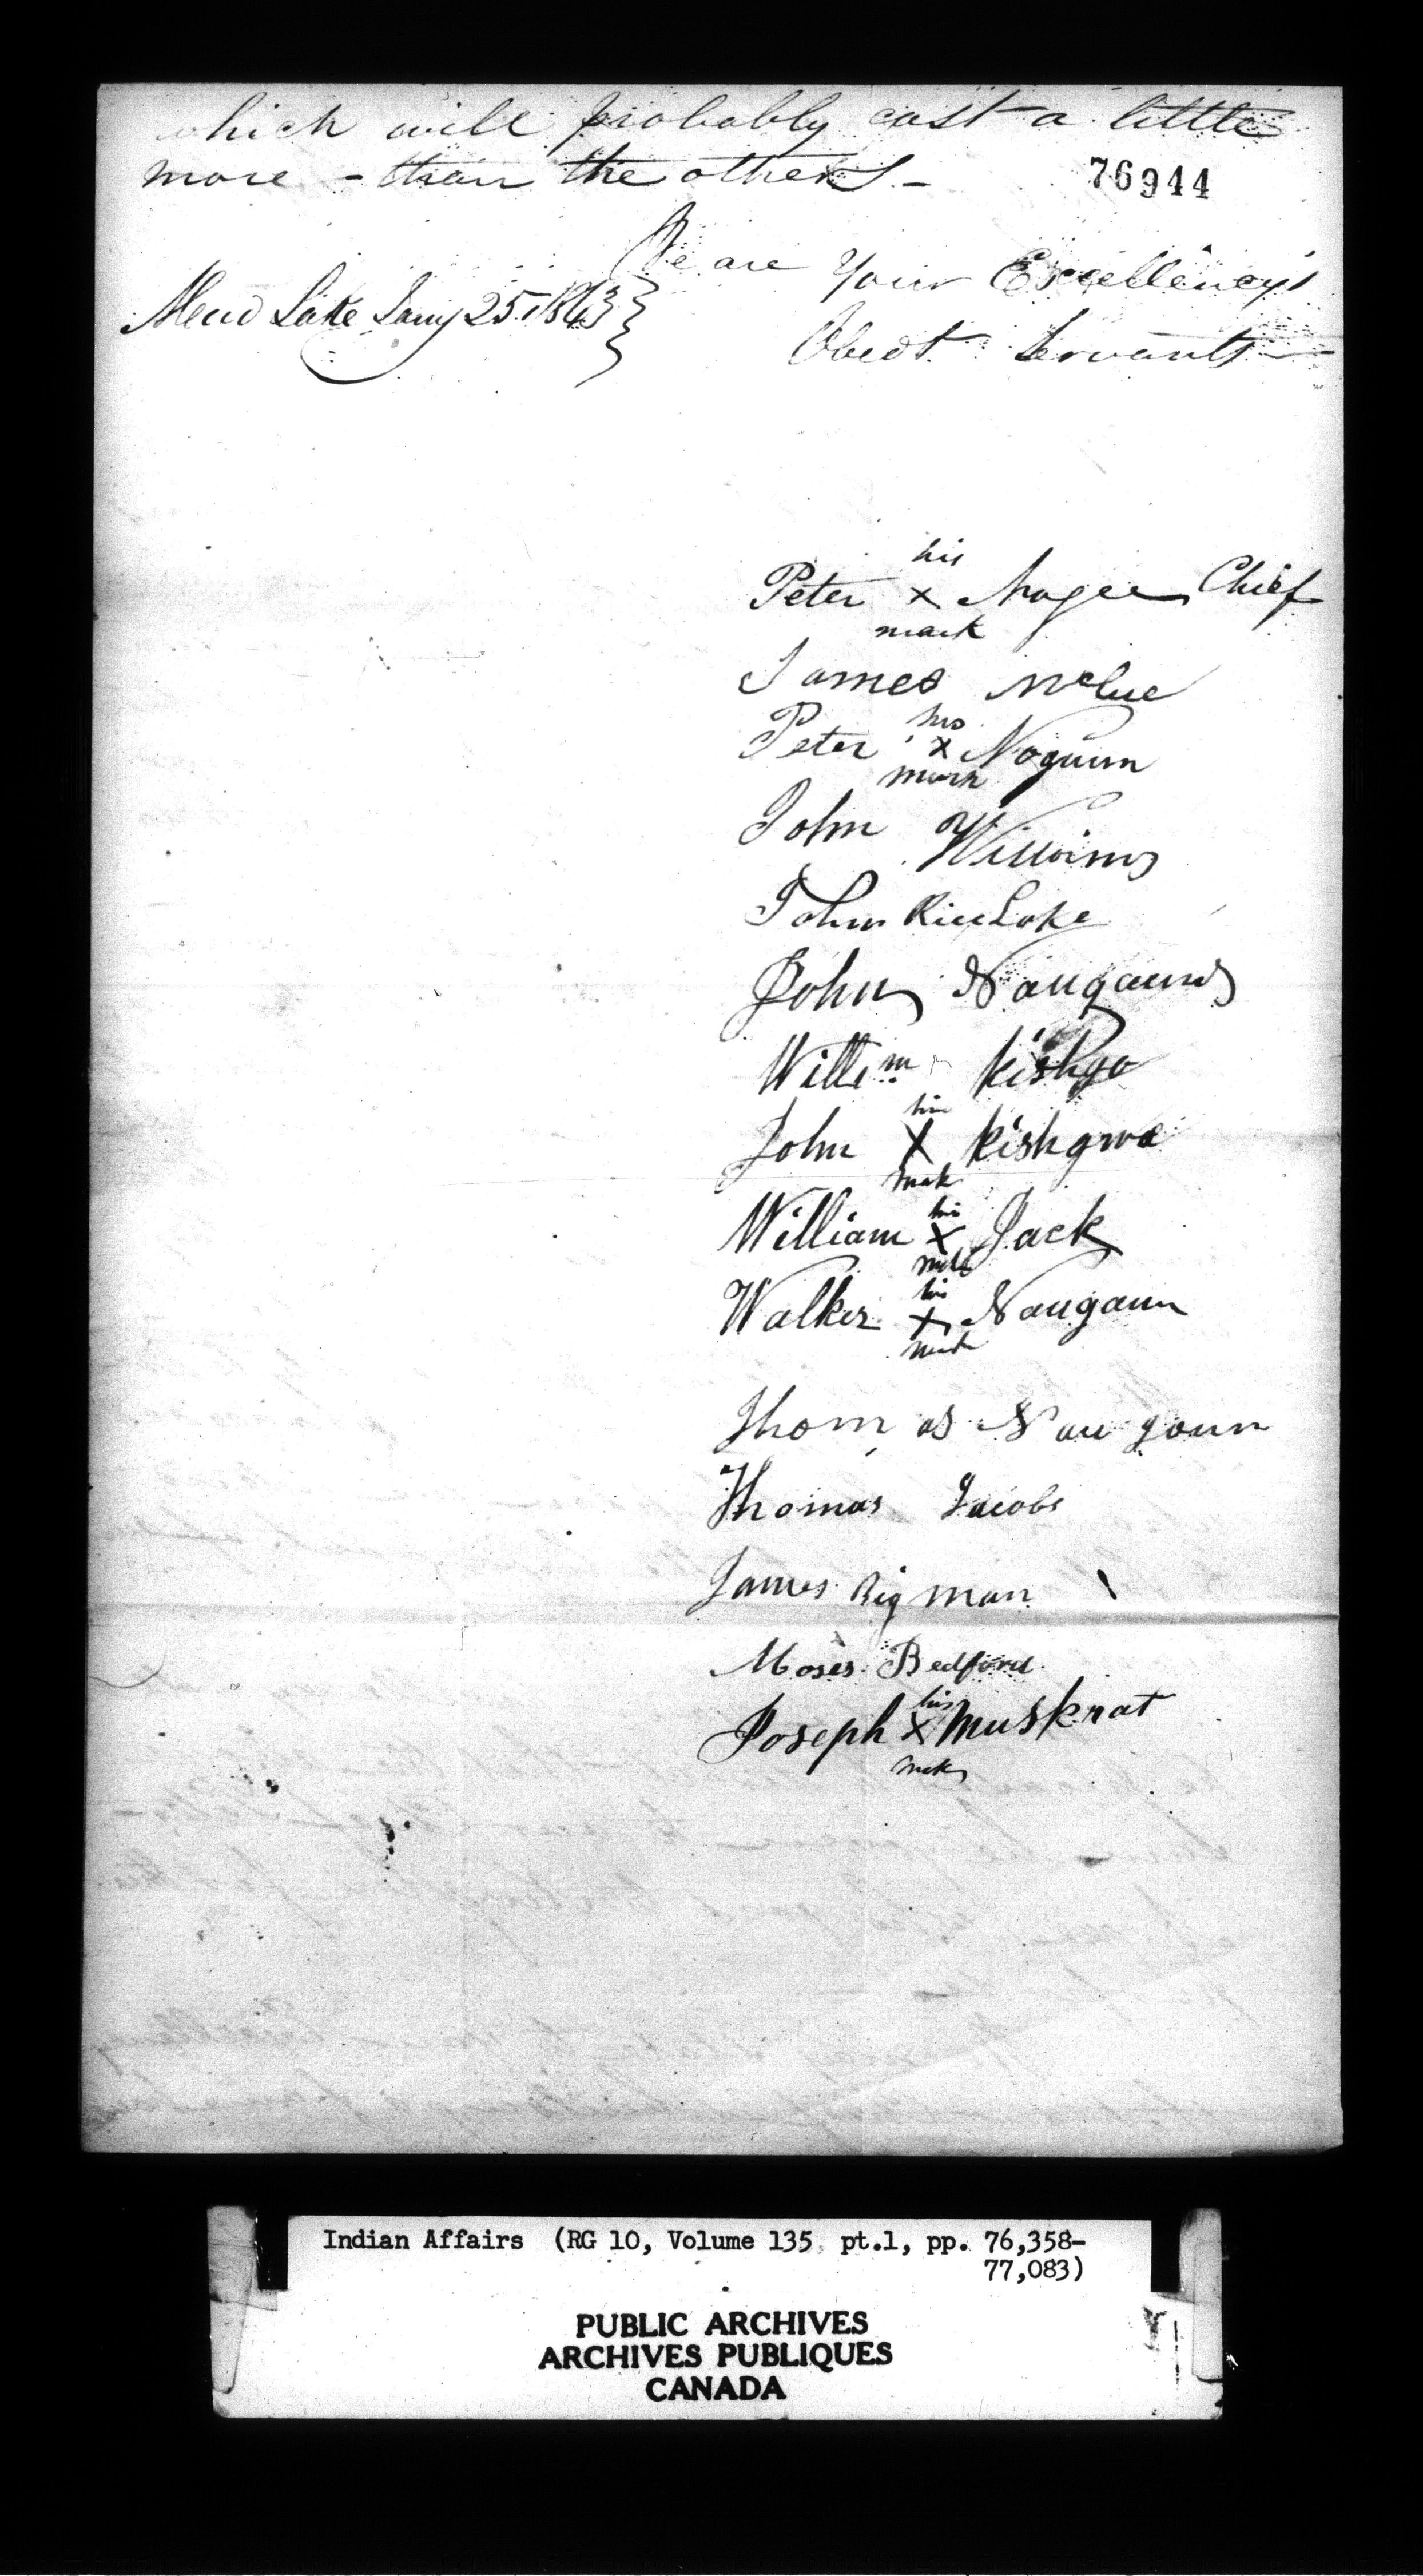 which will probably cost a little
more - than the others -
76944
We are Your Excellency's
Mud Lake Jany 25. 1843
Obedt Servants
his
Peter x Nogee Chief
mark
James McCue
his
Peter x Noguun
mark
John Williams
John Rice Lake
John Naugaun
Willim Kishgo
his
John X Kishgwa
mark
his
William X Jack
mark
his
Walker X Naugaun
mark
Thomas Naugaun
Thomas Jacobs
James Big man
Moses Bedford
his
Joseph X Muskrat
mark
Indian Affairs (RG 10, Volume 135 pt.1, pp. 76,358-
77,083)
PUBLIC ARCHIVES
ARCHIVES PUBLIQUES
CANADA